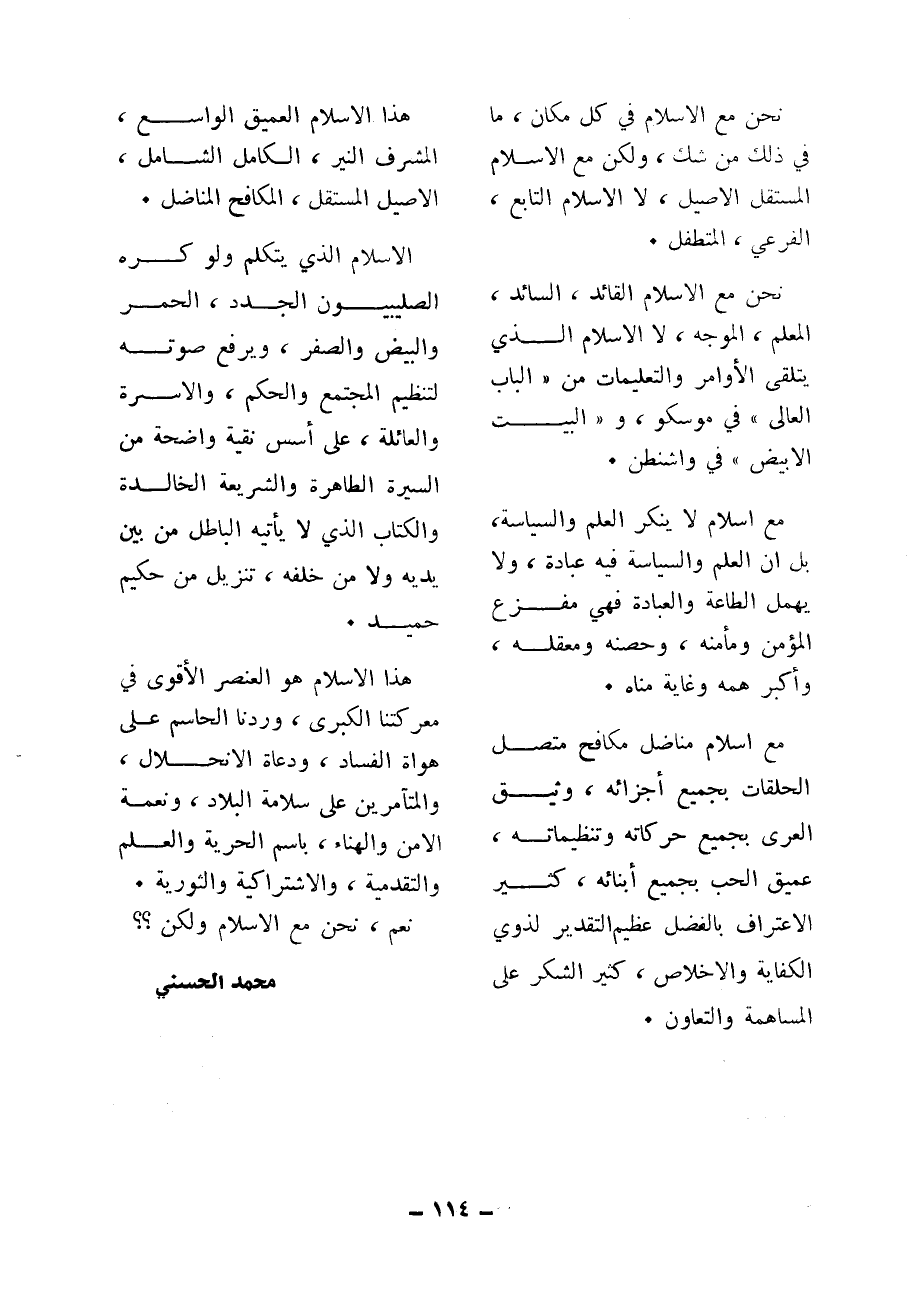 نحن مع الاسلام في كل مكان ، ما
في ذلك من شك ، ولكن مع الاسلام
المستقل الاصيل ، لا الاسلام التابع ،
الفرعي ، المتطفل .
نحن مع الاسلام القائد ، السائد ،
المعلم ، الموجه ، لا الاسلام الذي
يتلقى الأوامر والتعليمات من « الباب
العالى » في موسكو ، و « البيت
الابيض » في واشنطن .
مع اسلام لا ينكر العلم والسياسة،
بل ان العلم والسياسة فيه عبادة ، ولا
يهمل الطاعة والعبادة فهي مفزع
المؤمن ومأمنه ، وحصنه ومعقله ،
وأكبر همه وغاية مناه .
مع اسلام مناضل مكافح متصل
الحلقات بجميع أجزائه ، وثيق
العرى بجميع حركاته وتنظيماته ،
عميق الحب بجميع أبنائه ، كثير
الاعتراف بالفضل عظيم التقدير لذوي
الكفاية والاخلاص ، كثير الشكر على
المساهمة والتعاون .
هذا الاسلام العميق الواسع ،
المشرف النير ، الكامل الشامل ،
الاصيل المستقل ، المكافح المناضل .
الاسلام الذي يتكلم ولو كره
الصليبيون الجدد ، الحمر
والبيض والصفر ، ويرفع صوته
لتنظيم المجتمع والحكم ، والاسرة
والعائلة ، على أسس نقية واضحة من
السيرة الطاهرة والشريعة الخالدة
والكتاب الذي لا يأتيه الباطل من بين
يديه ولا من خلفه ، تنزيل من حكيم
حميد .
هذا الاسلام هو العنصر الأقوى في
معركتنا الكبرى ، وردنا الحاسم على
هواة الفساد ، ودعاة الانحلال ،
والمتآمرين على سلامة البلاد ، ونعمة
الامن والهناء ، باسم الحرية والعلم
والتقدمية ، والاشتراكية والثورية .
نعم ، نحن مع الاسلام ولكن ؟؟
محمد الحسني
– ١١٤ –